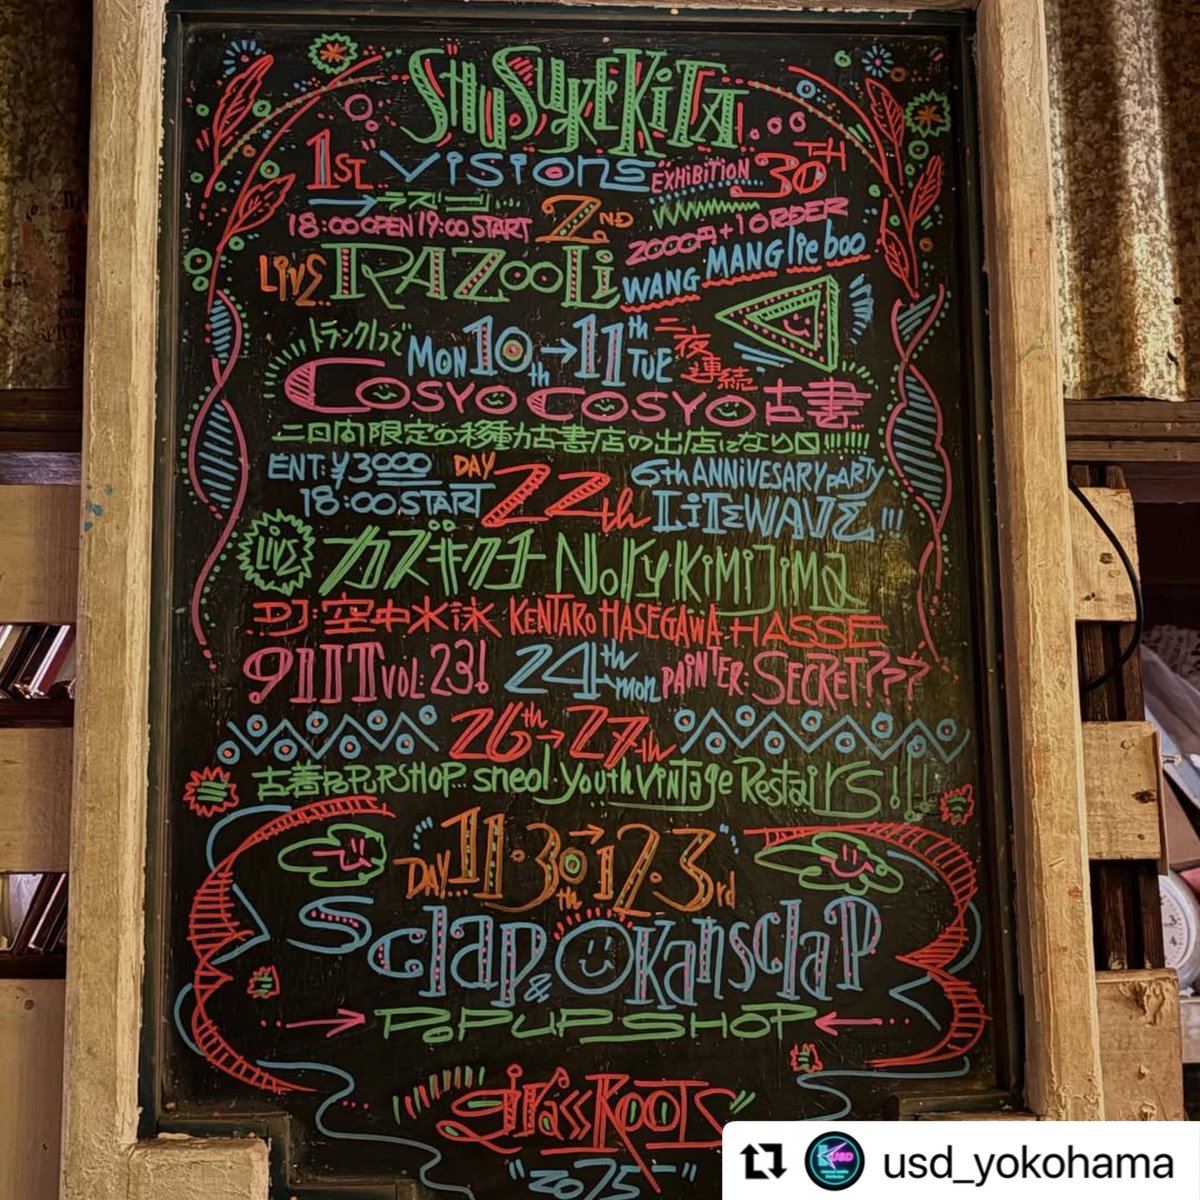 SHUSUKEKITA
1ST VISIONS EXHIBITION 30TH
→ラズーリ
18:00 OPEN 19:00 START 2ND 2000円+1 ORDER
LIVE RAZOOLI WANG MANGlie boo
トランク1つで MON 10th→11th TUE 二夜連続
COSYO COSYO 古書
二日間限定の移動古書店の出店になり〼!!!!!!
ENT:¥3000 DAY 22th 6th ANNIVESARY PARTY
18:00 START LITEWAVE!!!
LIVE カズキクチ NORY KIMIJIMA
DJ:空中水泳 KENTARO HASEGAWA HASSE
911T VOL:23! 24th mon PAINTER:SECRET???
26th→27th
古着POPUPSHOP sneol youth vintage Restairs!!!
DAY 11.30th→12.3rd
Sclap & OKANSCLAP
POPUPSHOP
grassROOTS
"2025"
usd_yokohama